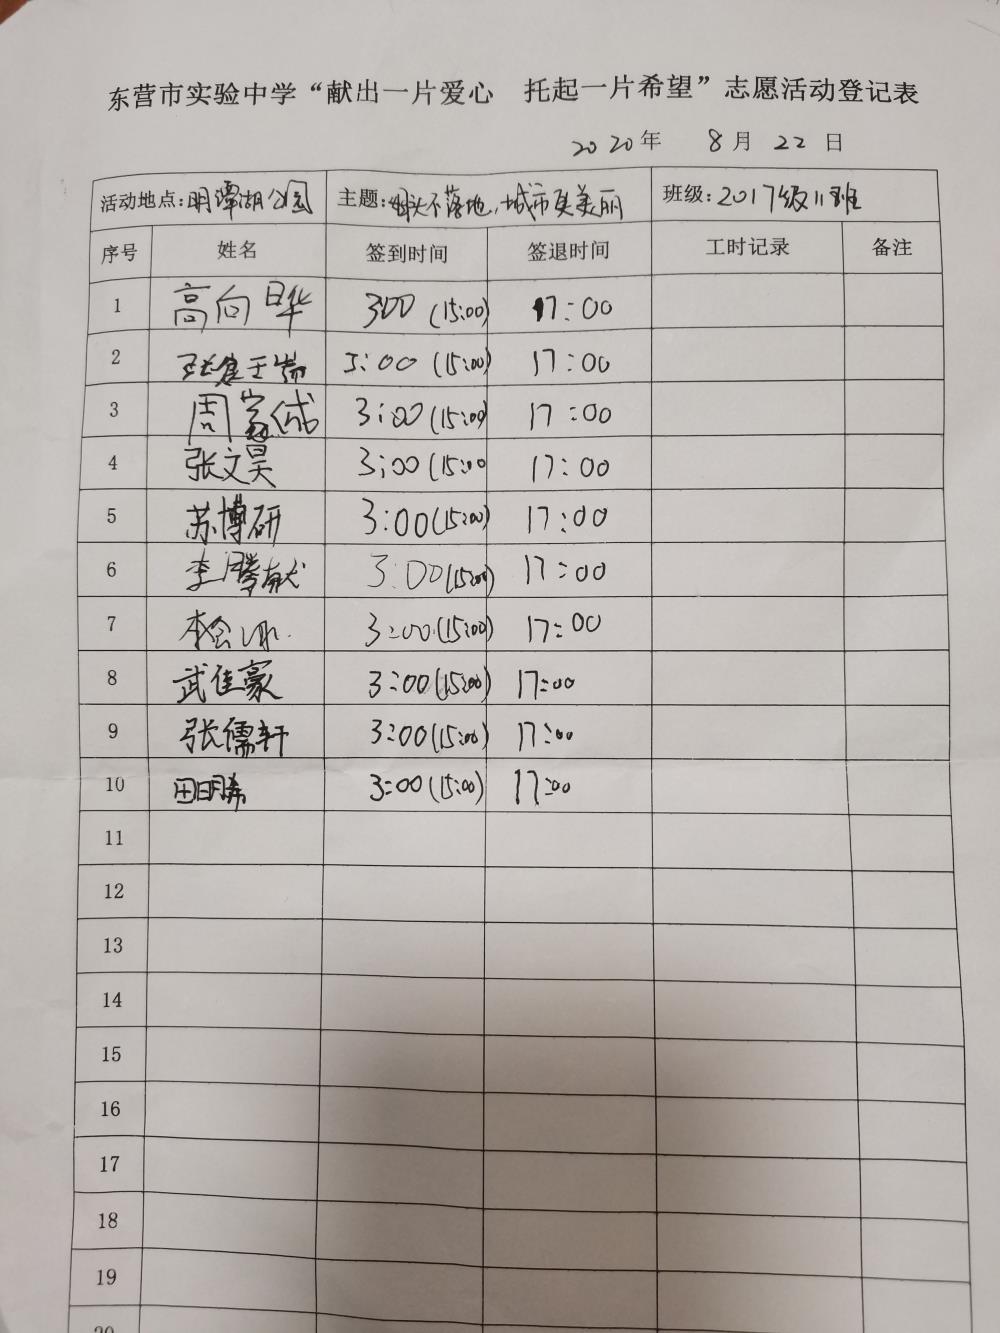 东营市实验中学“献出一片爱心 托起一片希望”志愿活动登记表
2020年 8月 22日
活动地点:明潭湖公园 主题:烟头不落地,城市更美丽 班级:2017级11班
序号 姓名 签到时间 签退时间 工时记录 备注
1 高向晔 300 (15:00) 17:00
2 3:00 (15:00) 17:00
3 周 3:00(15:00) 17:00
4 张文昊 3:00(15:00 17:00
5 苏博研 3:00(15:00) 17:00
6 李腾献 3:00(15:00) 17:00
7 3:00(15:00) 17:00
8 武佳豪 3:00(15:00) 17:00
9 张儒轩 3:00(15:00) 17:00
10 田明勝 3:00(15:00) 17:00
11
12
13
14
15
16
17
18
19
20